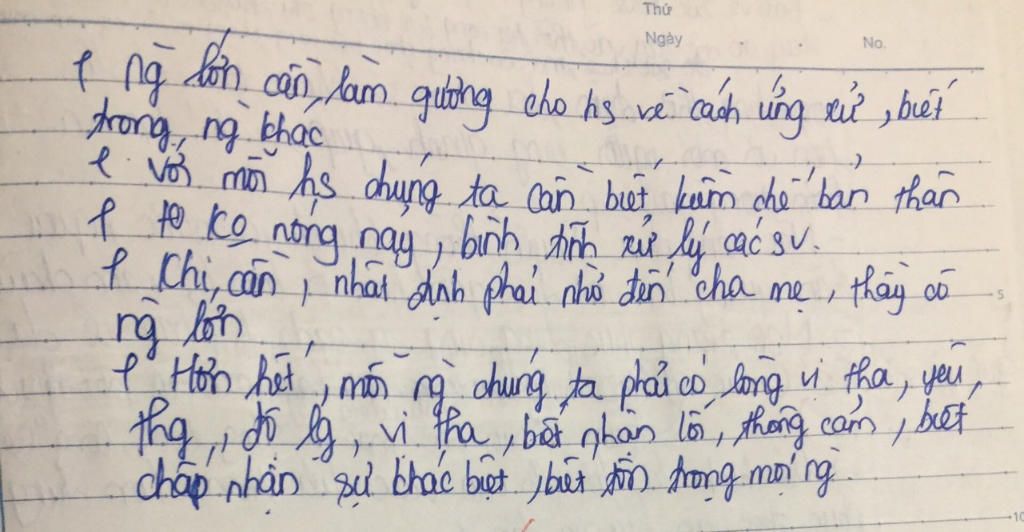 Thứ
Ngày
No.
+ ng lớn cần làm gương cho hs về cách ứng xử, biết
trọng ng khác
+ với mỗi hs chúng ta cần biết kiềm chế bản thân
+ ko nóng nảy, bình tĩnh xử lý các sv.
+ Khi cần, nhất định phải nhờ đến cha mẹ, thầy cô
ng lớn
+ Hơn hết, mỗi ng chúng ta phải có lòng vị tha, yêu
thg, độ lg, vị tha, biết nhận lỗi, thông cảm, biết
chấp nhận sự khác biệt, biết tôn trọng mọi ng
5
10